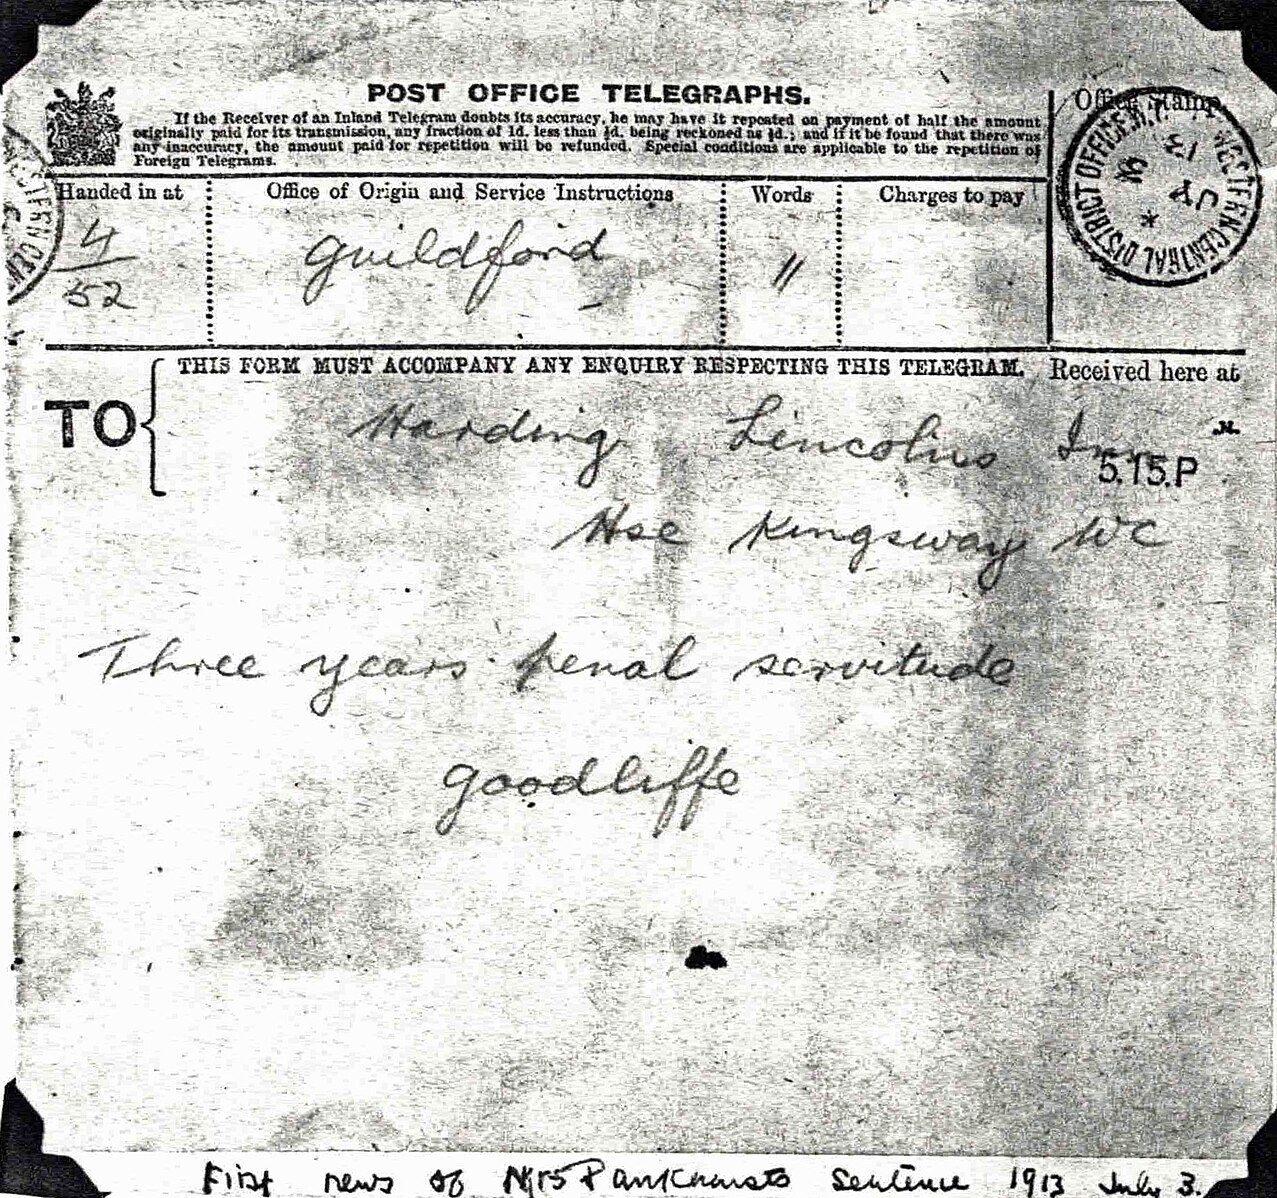 POST OFFICE TELEGRAPHS.
If the Receiver of an Inland Telegram doubts its accuracy, he may have it repeated on payment of half the amount
originally paid for its transmission, any fraction of 1d. less than ½d. being reckoned as ½d.; and if it be found that there was
any inaccuracy, the amount paid for repetition will be refunded. Special conditions are applicable to the repetition of
Foreign Telegrams.
Office Stamp.
WESTERN CENTRAL DISTRICT OFFICE
13
Handed in at
Office of Origin and Service Instructions
Words
Charges to pay
4
52
Guildford
11
THIS FORM MUST ACCOMPANY ANY ENQUIRY RESPECTING THIS TELEGRAM.
Received here at
TO
Harding Lincolns Inn
5.15.P
M.
Hse Kingsway WC
Three years penal servitude
Goodliffe
First news of Mrs Pankhursts sentence 1913 July 3.